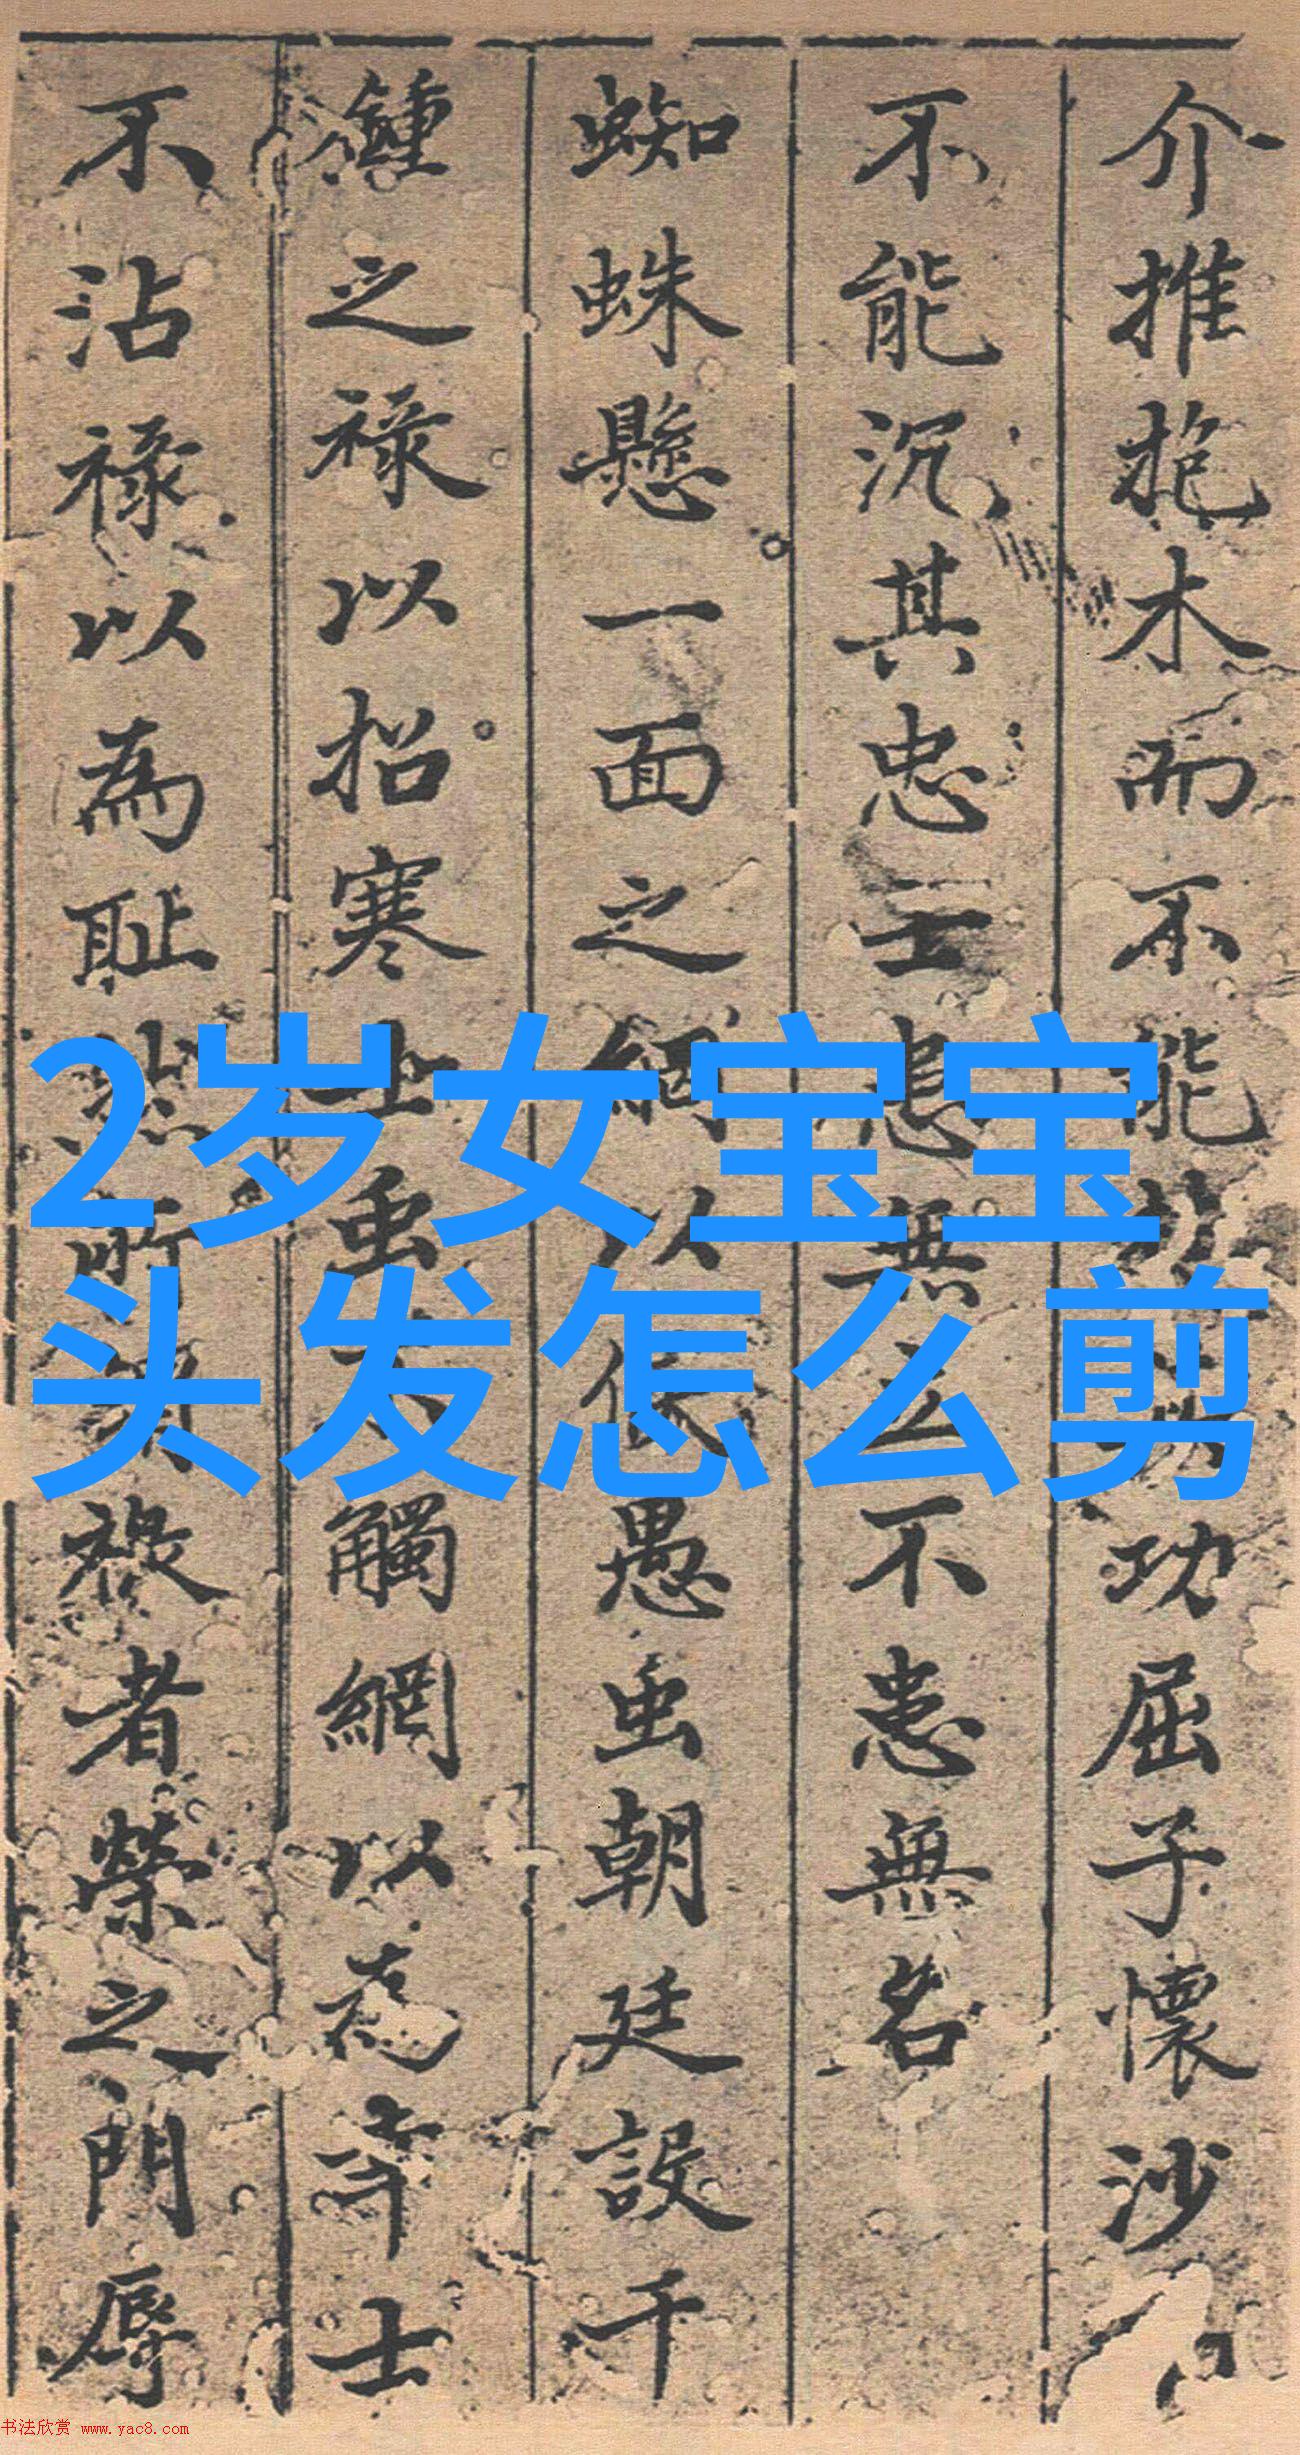 介推抱木而不能
功屈子懷沙
不能沉其忠士
無
不患無名
蜘蛛懸一面之網以
愚虫朝廷設千
鍾之祿以招寒士虫
觸網以為
士
不沾祿以為耻然所
祿者榮之門辱
2岁女宝宝
头发怎么剪
书法欣赏 www.yac8.com